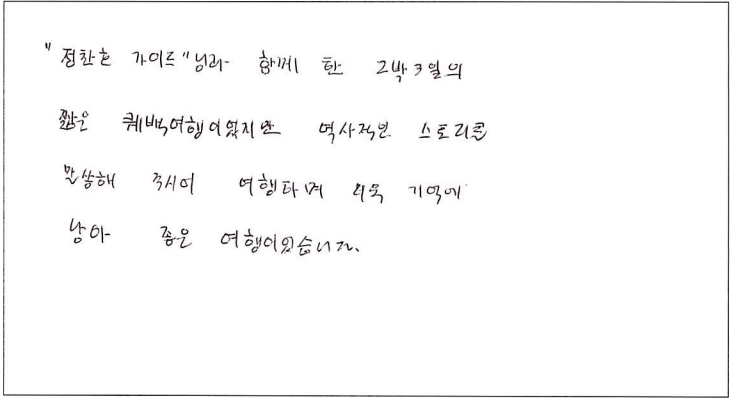 "정찬호 가이드"님과 함께 한 2박3일의
짧은 퀘백여행이었지만 역사적인 스토리를
말씀해 주시어 여행하며 더욱 기억에
남아 좋은 여행이었습니다.